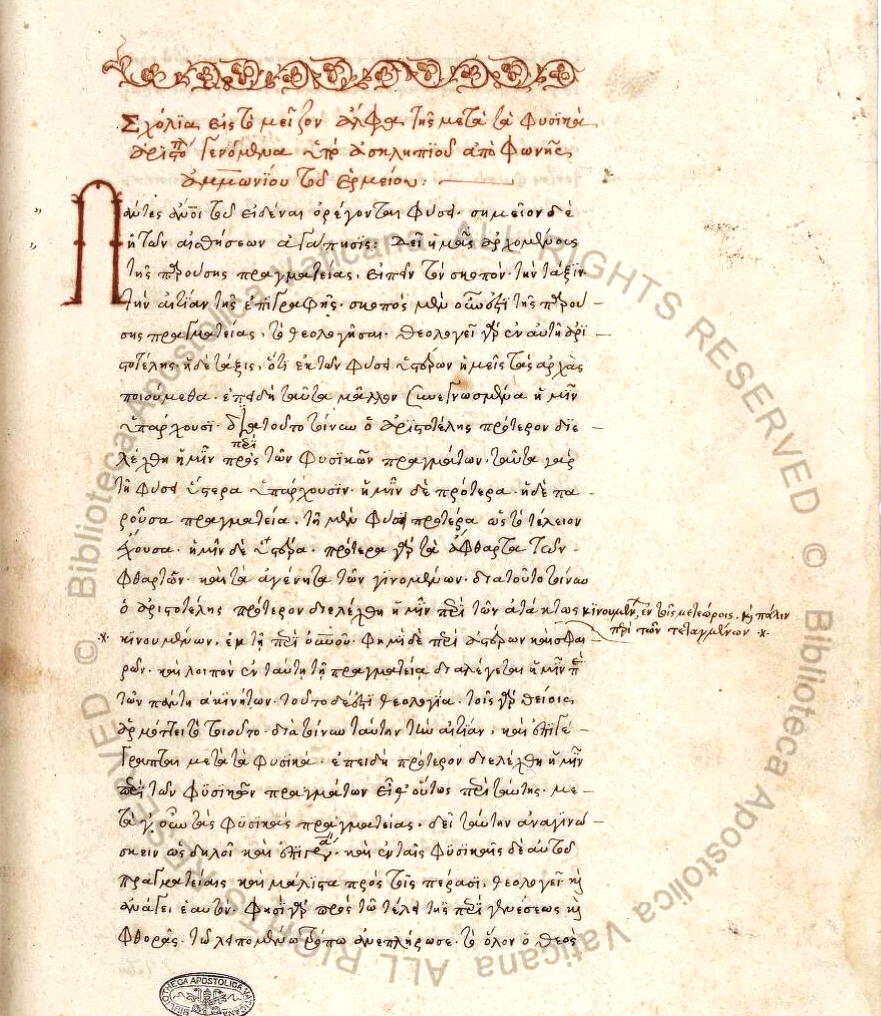 Σχόλια εἰς τὸ μεῖζον ἄλφα τῆς μετὰ τὰ φυσικὰ
ἀριστο γενόμενα ὑπὸ ἀσκληπίου ἀπὸ φωνῆς
ἀμμωνίου τοῦ ἑρμείου:
Πάντες ἄνοι τοῦ εἰδέναι ὀρέγονται φύσει· σημεῖον δὲ
ἡ τῶν αἰσθήσεων ἀγάπησις: Δεῖ ἡμᾶς ἀρχομένους
τῆς παρούσης πραγματείας, εἰπεῖν τὸν σκοπὸν· τὴν τάξιν
τὴν αἰτίαν τῆς ἐπιγραφῆς· σκοπὸς μὲν οὖν ἐστὶ τῆς παρού
σης πραγματείας, τὸ θεολογῆσαι· θεολογεῖ γὰρ ἐν αὐτῇ ἀρι
στοτέλης· ἡ δὲ τάξις, ὅτι ἐκ τῶν φύσει ὑστέρων ἡμεῖς τὰς ἀρχὰς
ποιούμεθα· ἐπειδὴ ταῦτα μᾶλλον συνεγνωσμένα ἡμῖν
ὑπάρχουσι· διατοῦτο τοίνυν ὁ ἀριστοτέλης πρότερον διε
λέχθη ἡμῖν περὶ τῶν φυσικῶν πραγμάτων· ταῦτα γὰρ
τῇ φύσει ὕστερα ὑπάρχουσιν· ἡμῖν δὲ πρότερα· ἡ δὲ πα
ροῦσα πραγματεία, τῇ μὲν φύσει προτέρα ὡς τὸ τέλειον
ἔχουσα· ἡμῖν δὲ ὑστέρα· πρότερα γὰρ τὰ ἄφθαρτα τῶν
φθαρτῶν· καὶ τὰ ἀγένητα τῶν γινομένων· διατοῦτο τοίνυν
ὁ ἀριστοτέλης πρότερον διελέχθη ἡμῖν περὶ τῶν ἀτάκτως κινουμένων ἐν τοῖς μετεώροις· καὶ πάλιν
περὶ τῶν τεταγμένων
κινουμένων, ἐν τῇ περὶ οὐνοῦ· φημὶ δὲ περὶ ἀστέρων καὶ σφαι
ρῶν· καὶ λοιπὸν ἐν ταύτῃ τῇ πραγματεία διαλέγεται ἡμῖν περὶ
τῶν πάντη ἀκινήτων· τοῦτο δέ ἐστι θεολογία· τοῖς γὰρ θείοις
ἁρμόττει τὸ τοιοῦτο· διὰ τοίνυν ταύτην τὴν αἰτίαν, καὶ ἐπιγέ
γραπται μετὰ τὰ φυσικά· ἐπειδὴ πρότερον διελέχθη ἡμῖν
περὶ τῶν φυσικῶν πραγμάτων εἶθ' οὕτως περὶ ταύτης· με
τὰ γ' οὖν τὰς φυσικὰς πραγματείας· δεῖ ταύτην ἀναγινώ
σκειν ὡς δηλοῖ καὶ· καὶ ἐν ταῖς φυσικαῖς δὲ αὐτοῦ
πραγματείαις καὶ μάλιστα πρὸς τοῖς πέρασι, θεολογεῖ καὶ
ἀνάγει ἑαυτόν· φησὶ γὰρ πρὸς τῷ τέλει τῆς περὶ γενέσεως καὶ
φθορᾶς· τῷ λειπομένῳ τρόπῳ ἀνεπλήρωσε· τὸ ὅλον ὁ θεὸς
© Biblioteca Apostolica Vaticana ALL RIGHTS RESERVED © Biblioteca Apostolica Vaticana ALL RIGHTS RESERVED
BIBLIOTHECA APOSTOLICA VATICANA